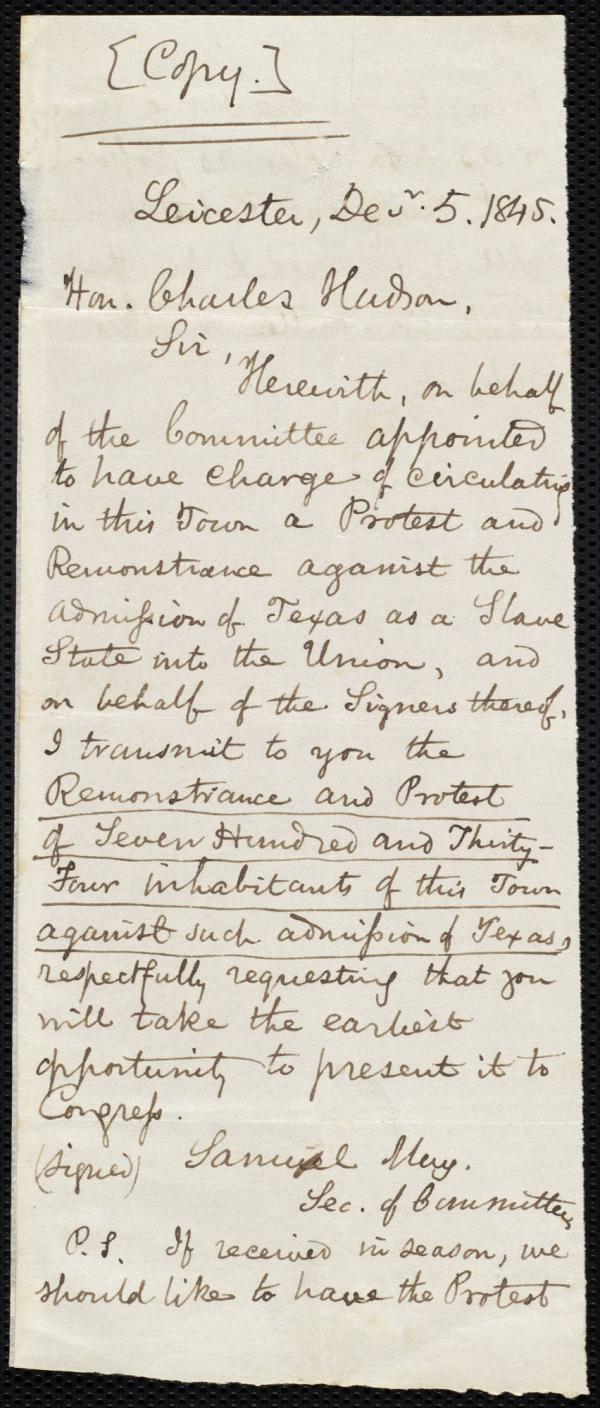 [Copy.]
Leicester, Decr. 5. 1845.
Hon. Charles Hudson,
Sir,
Herewith, on behalf
of the Committee appointed
to have charge of circulating
in this Town a Protest and
Remonstrance against the
admission of Texas as a Slave
State into the Union, and
on behalf of the Signers thereof,
I transmit to you the
Remonstrance and Protest
of Seven Hundred and Thirty-
Four inhabitants of this Town
against such admission of Texas,
respectfully requesting that you
will take the earliest
opportunity to present it to
Congress.
(signed) Samuel May.
Sec. of Committee
P.S. If received in season, we
should like to have the Protest